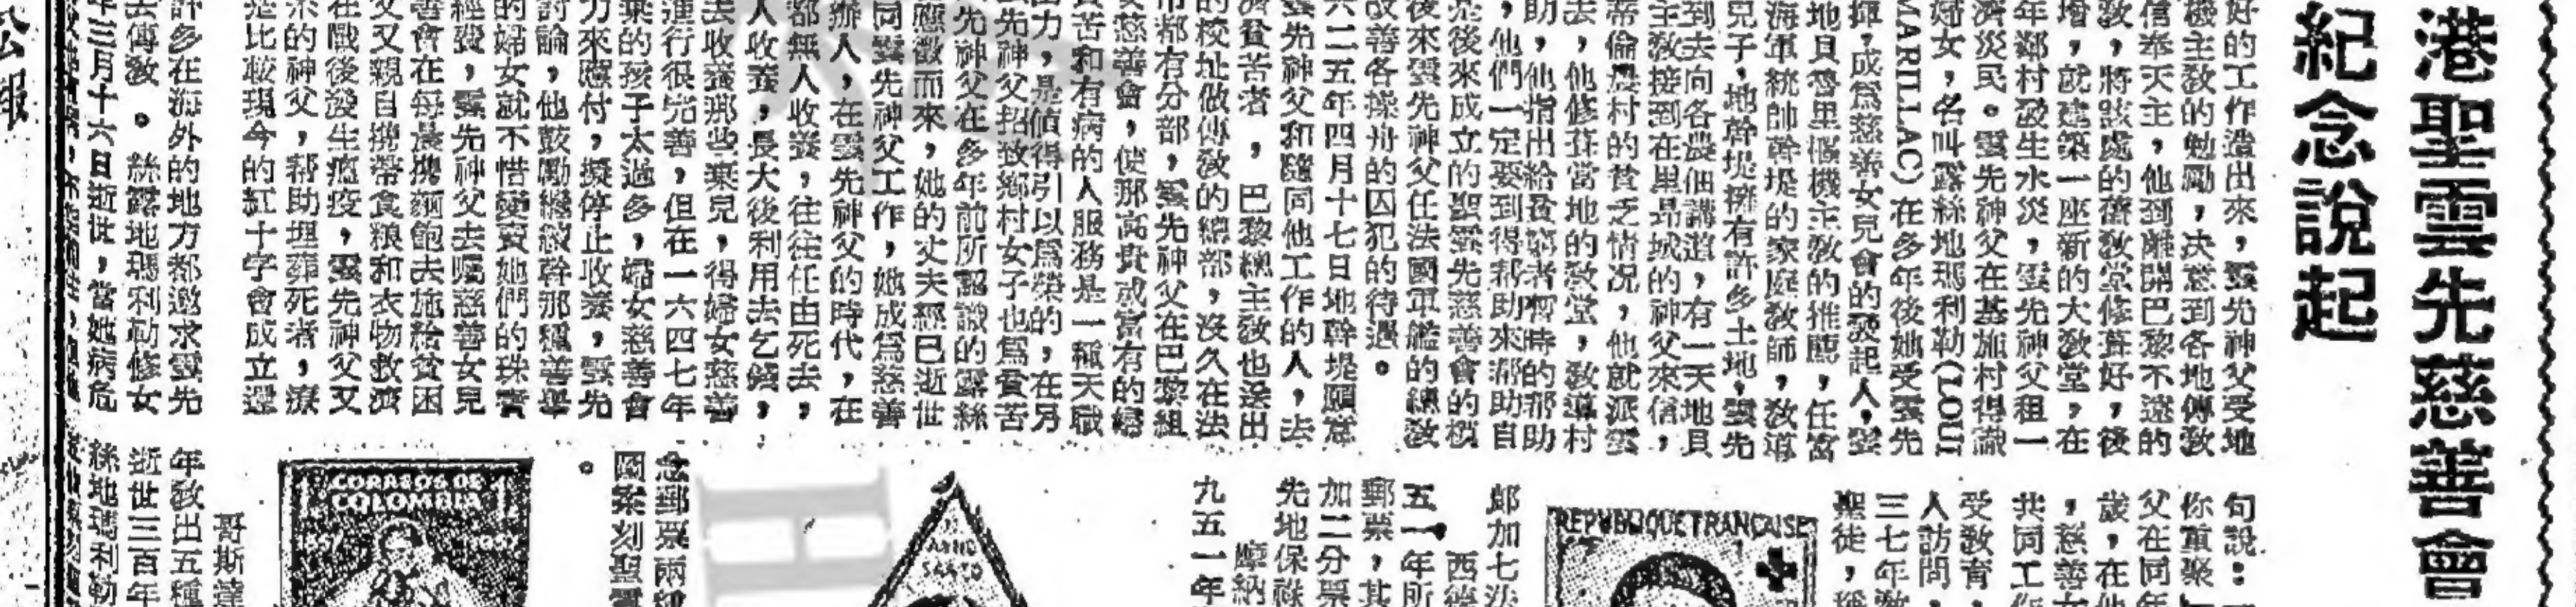 港聖雲先慈善會
紀念說起
好的工作造出來，雲先神父受地
機主教的勉勵，决意到各地傳教
信奉天主，他到離開巴黎不遠的
教，將該處的舊教堂修葺好，後
增，就建築一座新的大教堂，在
年鄰村發生水災，雲先神父租一
濟災民。雲先神父在基施村得識
婦女，名叫露絲地瑪利勒(LOUI
MARILLAC)在多年後她受雲先
揮，成爲慈善女兒會的發起人，
地貝魯里愠機主教的推薦，任富
海軍統帥幹堤的家庭教師，教導
兒子，地幹堤擁有許多土地，雲先
到去向各農佃講道，有一天地貝
主教接到在里昂城的神父來信，
蒂倫農村的貧乏情况，他就派雲
去，他修葺當地的教堂，教導村
助，他指出給貧窮者暫時的帮助
，他們一定要到得帮助來帮助自
是後來成立的聖雲先慈善會的模
後來雲先神父任法國軍艦的總教
改善各操舟的囚犯的待遇。
六二五年四月十七日地幹堤願意
雲先神父和隨同他工作的人，去
濟貧苦者，巴黎總主教也送出
的校址做傳教的總部，沒久在法
市都有分部，雲先神父在巴黎組
女慈善會，使那高貴或富有的婦
貧苦和有病的人服務是一種天職
出力，是值得引以爲榮的，在另
雲先神父招致鄉村女子也爲貧苦
先神父在多年前所認識的露絲
應徵而來，她的丈夫經已逝世
同雲先神父工作，她成爲慈善
辦人，在雲先神父的時代，在
都無人收養，往往任由死去，
人收養，長大後利用去乞錢，
去收養那些棄兒，得婦女慈善
進行很完善，但在一六四七年
棄的孩子太過多，婦女慈善會
力來應付，擬停止收養，雲先
討論，他鼓勵繼續幹那種善舉
的婦女就不惜變賣她們的珠寶
經費，雲先神父去囑慈善女兒
善會在每晨携麵飽去施給貧困
父又親自携帶食粮和衣物救濟
在戰後發生瘟疫，雲先神父又
來的神父，帮助埋葬死者，療
是比較現今的紅十字會成立還
許多在海外的地方都邀求雲先
去傳教。絲露地瑪利勒修女
年三月十六日逝世，當她病危
公報
句說：
你重聚
父在同年
歲，在他
，慈善女
共同工作
受教育，
人訪問，
三七年教
聖徒，
REPUBLIQUE FRANÇAISE
郎加七法
西德
五一年所
郵票，其
加二分票
先地保祿
摩納
九五一年
ANNO
SANTO
念郵票兩種
圖案刻聖雲
。
CORREOS DE
COLOMBIA
哥斯達
年教出五種
逝世三百年
絲地瑪利勒